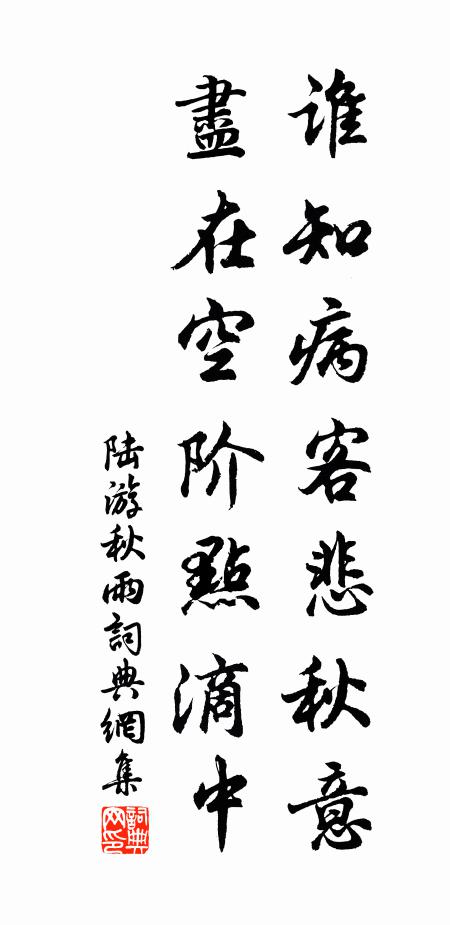 谁知病客悲秋意
盡在空阶點滴中
陆游秋雨詞典網集
詞典
网印